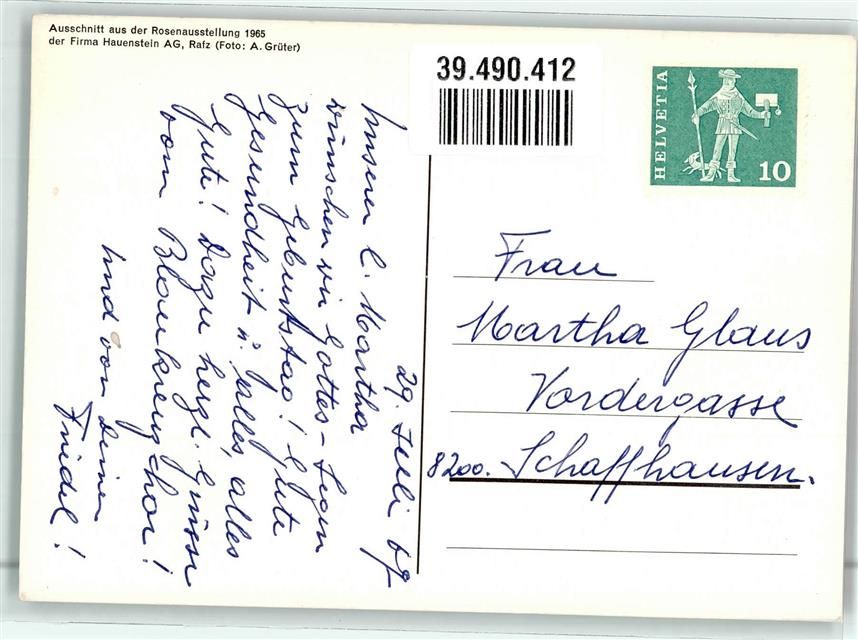 Ausschnitt aus der Rosenausstellung 1965
der Firma Hauenstein AG, Rafz (Foto: A. Grüter)
39.490.412
HELVETIA
10
29. Juli 69
Unserer l. Martha
wünschen wir Gottes-Segen
zum Geburtstag! Gute
Gesundheit u. alles, alles
Gute! Dazu herzl. Grüsse
vom Blaukreuzchor!
Und von Deiner
Friedel!
Frau
Martha Glaus
Vordergasse
8200. Schaffhausen.